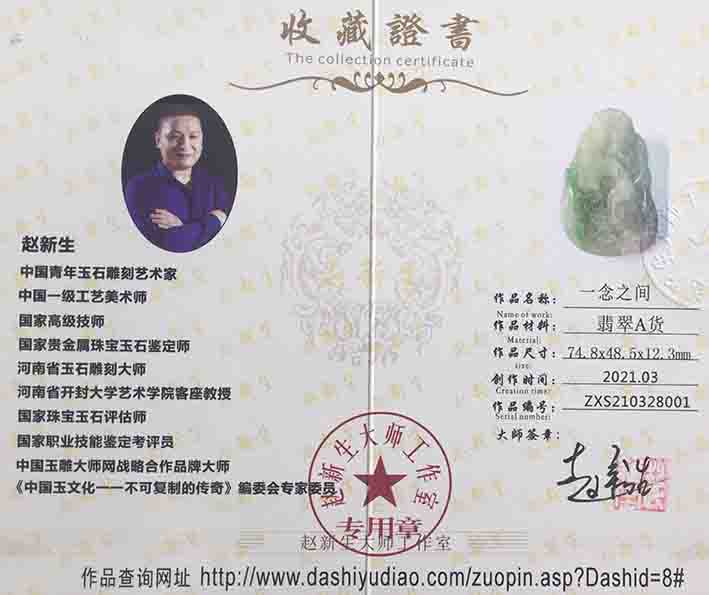 收藏證書
The collection certificate
赵新生
中国青年玉石雕刻艺术家
中国一级工艺美术师
国家高级技师
国家贵金属珠宝玉石鉴定师
河南省玉石雕刻大师
河南省开封大学艺术学院客座教授
国家珠宝玉石评估师
国家职业技能鉴定考评员
中国玉雕大师网战略合作品牌大师
《中国玉文化——不可复制的传奇》编委会专家委员
作品名称： 一念之间
Name of work:
作品材料： 翡翠A货
Material:
作品尺寸： 74.8x48.5x12.3mm
size:
创作时间： 2021.03
Creation time:
作品编号： ZXS210328001
Serial number:
大师签章：
赵新生大师工作室
专用章
赵新生大师工作室
作品查询网址 http://www.dashiyudiao.com/zuopin.asp?Dashid=8#